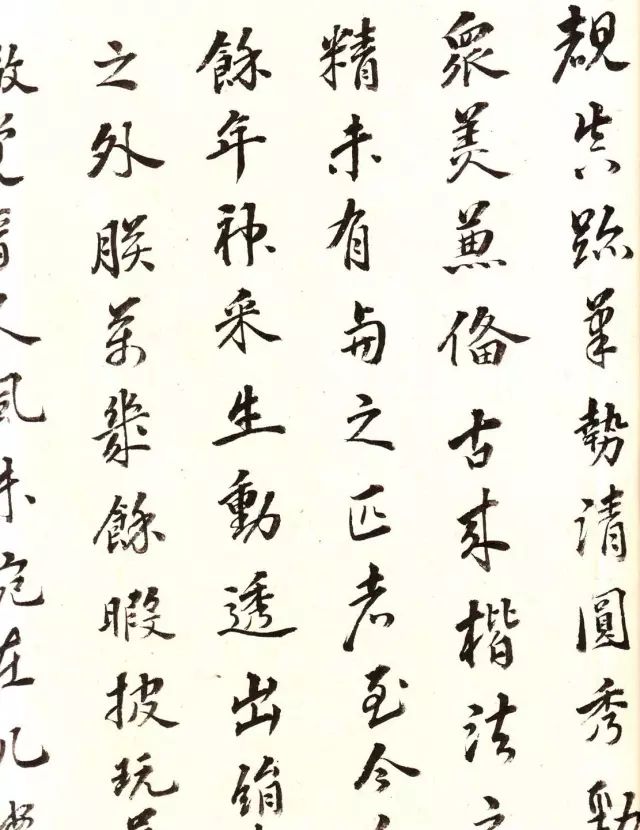 覩真跡筆勢清圓秀勁
衆美兼備古來楷法之
精未有與之匹者至今
餘年神采生動透出絹
之外朕萬幾餘暇披玩
覺晉人風味宛在几